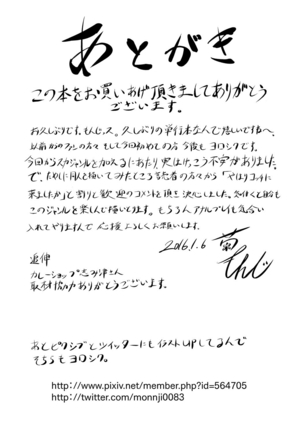 あとがき
この本をお買いあげ頂きましてありがとう
ございます。
お久しぶりです。もんじっス。久しぶりの単行本なんで嬉しいですねへ。
以前からのファンの方々もして今回初めての方 今後もヨロシクです。
今回からスカジャンルを加えるにあたり実はけっこう不安がありました。
で、ためしに何人と描いてみたところ読者の方々から「やはりコッチに
来ましたか」と割りと歓迎のコメントを頂き決心しました。
このジャンルを楽しんで描いてります。もちろんアナルプレイも気合い
入れてやりますんで 応援よろしくお願いします。
2016.1.6 菊もんじ
追伸
カレーショップ
取材協力ありがとうございます。
あとピクシブとツイッターにもイラストUPしてるんで
そちらもヨロシク。
http://www.pixiv.net/member.php?id=564705
http://twitter.com/monnji0083